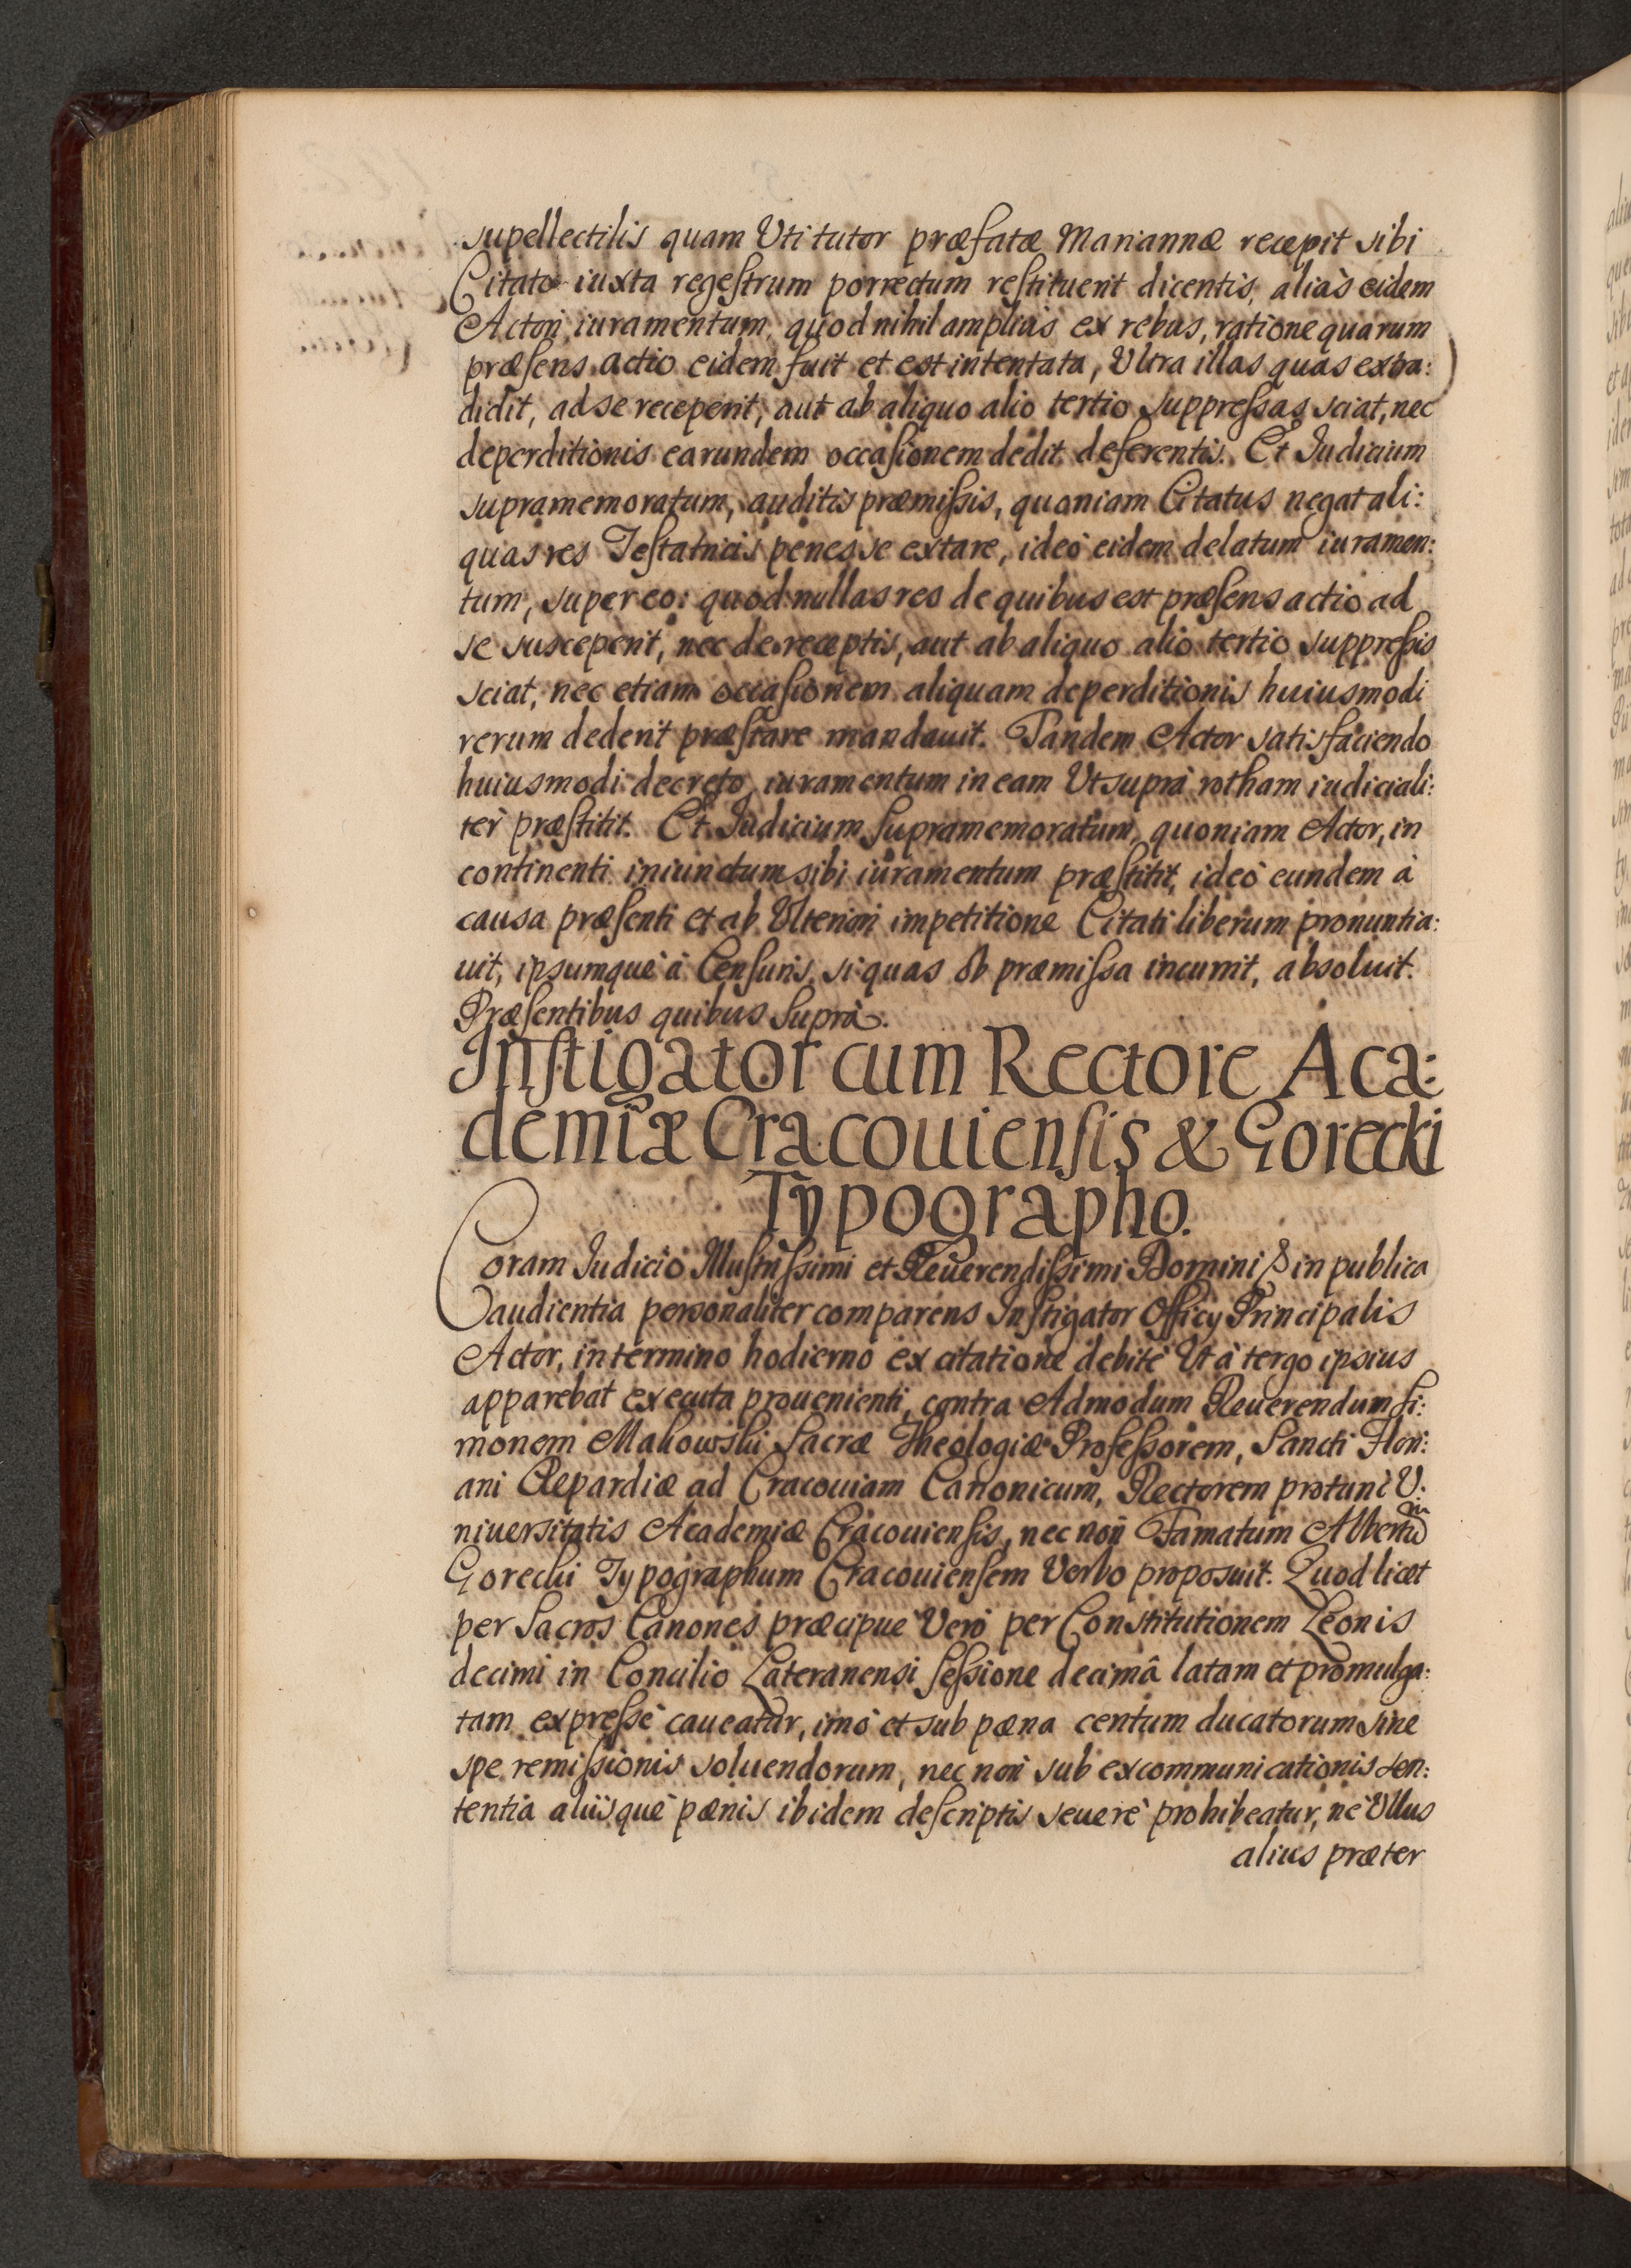 supellectilis quam Uti tutor præfatæ Mariannæ recepit sibi
Citato iuxta regestrum porrectum restituerit dicentis, aliàs eidem
Actori iuramentum, quod nihil ampliùs ex rebus, ratione quarum
præsens actio eidem fuit et est intentata, Ultra illas quas extra:
didit, ad se receperit, aut ab aliquo alio tertio suppressas sciat, nec
deperditionis earundem occasionem dedit deferentis. Et Iudicium
supramemoratum, auditis præmissis, quoniam Citatus negat ali:
quas res Testatricis penes se extare, ideò eidem delatum iuramen:
tum, super eo: quod nullas res de quibus est præsens actio ad
se susceperit, nec de receptis, aut ab aliquo alio tertio suppressis
sciat, nec etiam occasionem aliquam deperditionis huiusmodi
rerum dederit præstare mandauit. Tandem Actor satisfaciendo
huiusmodi decreto, iuramentum in eam Ut suprà rotham iudiciali:
ter præstitit. Et Iudicium supramemoratum, quoniam Actor, in
continenti iniunctum sibi iuramentum præstitit, ideò eundem à
causa præsenti et ab Ulteriori impetitione Citati liberum pronuntia:
uit, ipsumque à Censuris, si quas ob præmissa incurrit, absoluit.
Præsentibus quibus suprà.
Instigator cum Rectore Aca:
demiæ Cracouiensis & Gorecki
Typographo.
Coram Iudicio Illustrissimi et Reuerendissimi Domini & in publica
audientia personaliter comparens Instigator Officij Principalis
Actor, in termino hodierno ex citatione debitè Ut à tergo ipsius
apparebat executa prouenienti, contra Admodum Reuerendum Si:
monem Makowski Sacræ Theologiæ Professorem, Sancti Flori:
ani Clepardiæ ad Cracouiam Canonicum, Rectorem protunc U:
niuersitatis Academiæ Cracouiensis, nec non Famatum Albertum
Gorecki Typographum Cracouiensem Verbo proposuit. Quod licet
per Sacros Canones præcipuè Verò per Constitutionem Leonis
decimi in Concilio Lateranensi sessione decimâ latam et promulga:
tam expressè caueatur, imò et sub pæna centum ducatorum sine
spe remissionis soluendorum, nec non sub excommunicationis sen:
tentia aliisquè pænis ibidem descriptis seuerè prohibeatur, nè Ullus
alius præter